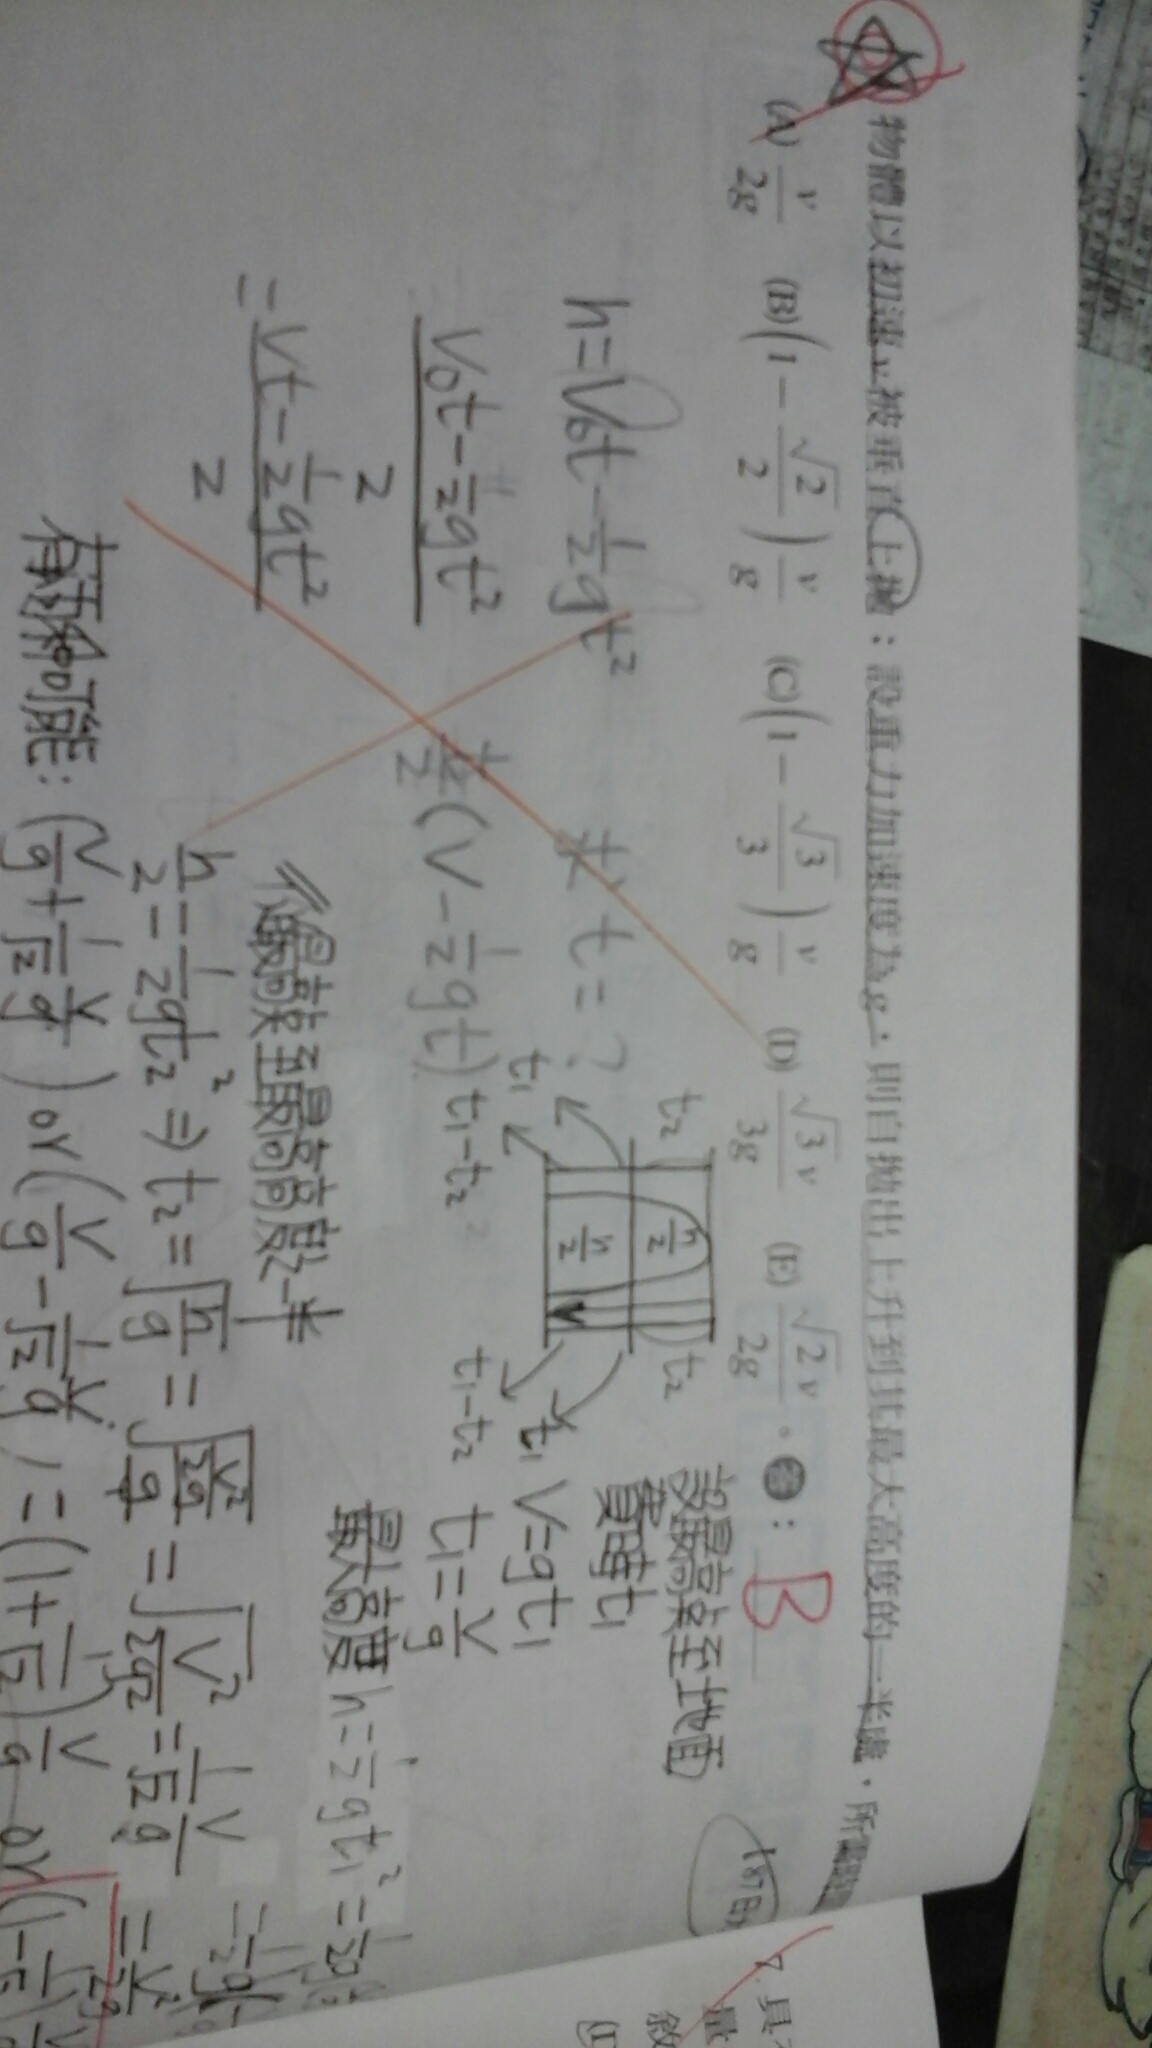 物體以初速v被垂直上拋：設重力加速度為g，則自拋出上升到其最大高度的一半處，所需
(A) v/2g (B) (1 − √2/2) v/g (C) (1 − √3/3) v/g (D) √3v/3g (E) √2v/2g 。答：B
187日
h=V₀t−1/2gt² 求t=?
V₀t−1/2gt² / 2
1/2(V−1/2gt)
=Vt−1/2gt² / 2
t₂ t₂
h/2
h/2
t₁ t₁
t₁−t₂ t₁−t₂
設最高點至地面
費時t₁
V=gt₁
t₁=V/g
最大高度h=1/2gt₁²=
從最高點至最高高度一半
h/2=1/2gt₂²⇒t₂=√(h/g)=√(V²/2g/g)=√(V²/2g²)=1/√2 V/g
有兩種可能:(V/g+1/√2 V/g) or (V/g−1/√2 V/g)=(1+1/√2)V/g or (1−1/√2)
7.
量
敘